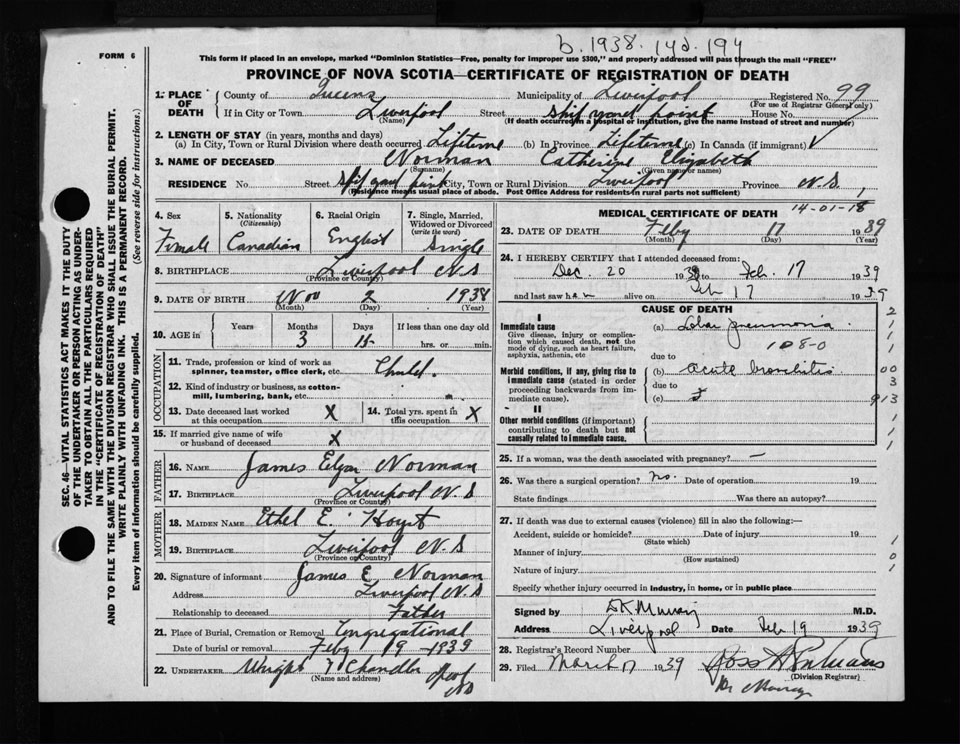 b. 1938. 14d. 194
FORM 6
This form if placed in an envelope, marked "Dominion Statistics—Free, penalty for improper use $300," and properly addressed will pass through the mail "FREE"
PROVINCE OF NOVA SCOTIA—CERTIFICATE OF REGISTRATION OF DEATH
1. PLACE OF DEATH
County of Queens Municipality of Liverpool Registered No. 99
(For use of Registrar General only)
If in City or Town Liverpool Street Ship yard point House No.
(Name) (If death occurred in a hospital or institution, give the name instead of street and number)
2. LENGTH OF STAY (in years, months and days)
(a) In City, Town or Rural Division where death occurred Lifetime (b) In Province Lifetime (c) In Canada (if immigrant) ✓
3. NAME OF DECEASED Norman Catherine Elizabeth
(Surname) (Given name or names)
RESIDENCE No. Street Ship yard City, Town or Rural Division Liverpool Province N.S,
(Residence means usual place of abode. Post Office Address for residents in rural parts not sufficient)
4. Sex
Female
5. Nationality (Citizenship)
Canadian
6. Racial Origin
English
7. Single, Married, Widowed or Divorced (write the word)
Single
8. BIRTHPLACE Liverpool N.S
(Province or Country)
9. DATE OF BIRTH Nov 2 1938
(Month) (Day) (Year)
10. AGE in Years Months Days If less than one day old
3 15 hrs. or min.
OCCUPATION
11. Trade, profession or kind of work as spinner, teamster, office clerk, etc. Child.
12. Kind of industry or business, as cotton-mill, lumbering, bank, etc.
13. Date deceased last worked at this occupation X
14. Total yrs. spent in this occupation X
15. If married give name of wife or husband of deceased X
FATHER
16. NAME James Elgar Norman
17. BIRTHPLACE Liverpool N.S
(Province or Country)
MOTHER
18. MAIDEN NAME Ethel E. Hoyt
19. BIRTHPLACE Liverpool N.S
(Province or Country)
20. Signature of informant James E Norman
Address Liverpool N.S
Relationship to deceased Father
21. Place of Burial, Cremation or Removal Congregational
Date of burial or removal Feby 19 1939
22. UNDERTAKER Wright & Chandler
(Name and address)
MEDICAL CERTIFICATE OF DEATH
14-01-18
23. DATE OF DEATH Feby 17 1939
(Month) (Day) (Year)
24. I HEREBY CERTIFY that I attended deceased from:
Dec. 20 1938 to Feb. 17 1939
and last saw her alive on Feb 17 1939
CAUSE OF DEATH
I
Immediate cause
Give disease, injury or complication which caused death, not the mode of dying, such as heart failure, asphyxia, asthenia, etc
(a) Lobar pneumonia.
108-0
due to
Morbid conditions, if any, giving rise to immediate cause (stated in order proceeding backwards from immediate cause).
(b) acute bronchitis
due to
(c)
II
Other morbid conditions (if important) contributing to death but not causally related to immediate cause.
2
1
1
1
00
3
913
1
1
1
25. If a woman, was the death associated with pregnancy? —
26. Was there a surgical operation? No. Date of operation 19
State findings Was there an autopsy?
27. If death was due to external causes (violence) fill in also the following:—
Accident, suicide or homicide? Date of injury 19
(State which)
Manner of injury
(How sustained)
Nature of injury
1
0
1
Specify whether injury occurred in industry, in home, or in public place
Signed by D K Murray M.D.
Address Liverpool Date Feb 19 1939
28. Registrar's Record Number
29. Filed March 17 1939
(Division Registrar)
Dr Murray
SEC. 46—VITAL STATISTICS ACT MAKES IT THE DUTY OF THE UNDERTAKER OR PERSON ACTING AS UNDERTAKER TO OBTAIN ALL THE PARTICULARS REQUIRED IN THE "CERTIFICATE OF REGISTRATION OF DEATH" AND TO FILE THE SAME WITH THE DIVISION REGISTRAR WHO SHALL ISSUE THE BURIAL PERMIT.
WRITE PLAINLY WITH UNFADING INK. THIS IS A PERMANENT RECORD.
Every item of information should be carefully supplied. (See reverse side for instructions.)